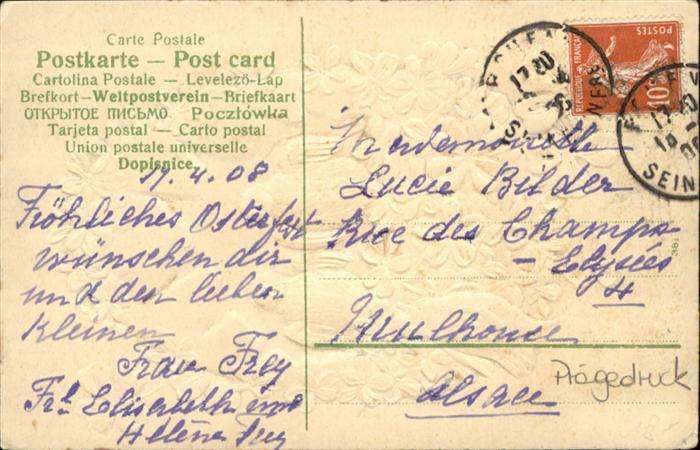 Carte Postale
Postkarte — Post card
Cartolina Postale — Levelező-Lap
Brefkort—Weltpostverein—Briefkaart
ОТКРЫТОЕ ПИСЬМО Pocztówka
Tarjeta postal — Carto postal
Union postale universelle
Dopisnice.
4. 08
Fröhliches Osterfest
wünschen dir
und den lieben
Kleinen
Frau Frey
Frl. Elisabeth und
Helene Frey
POSTES
REPUBLIQUE FRANÇAISE
10
17 20
SEINE
Mademoiselle
Lucie Bilder
Rue des Champs
- Elysées
4
Mulhouse
Alsace
Prägedruck